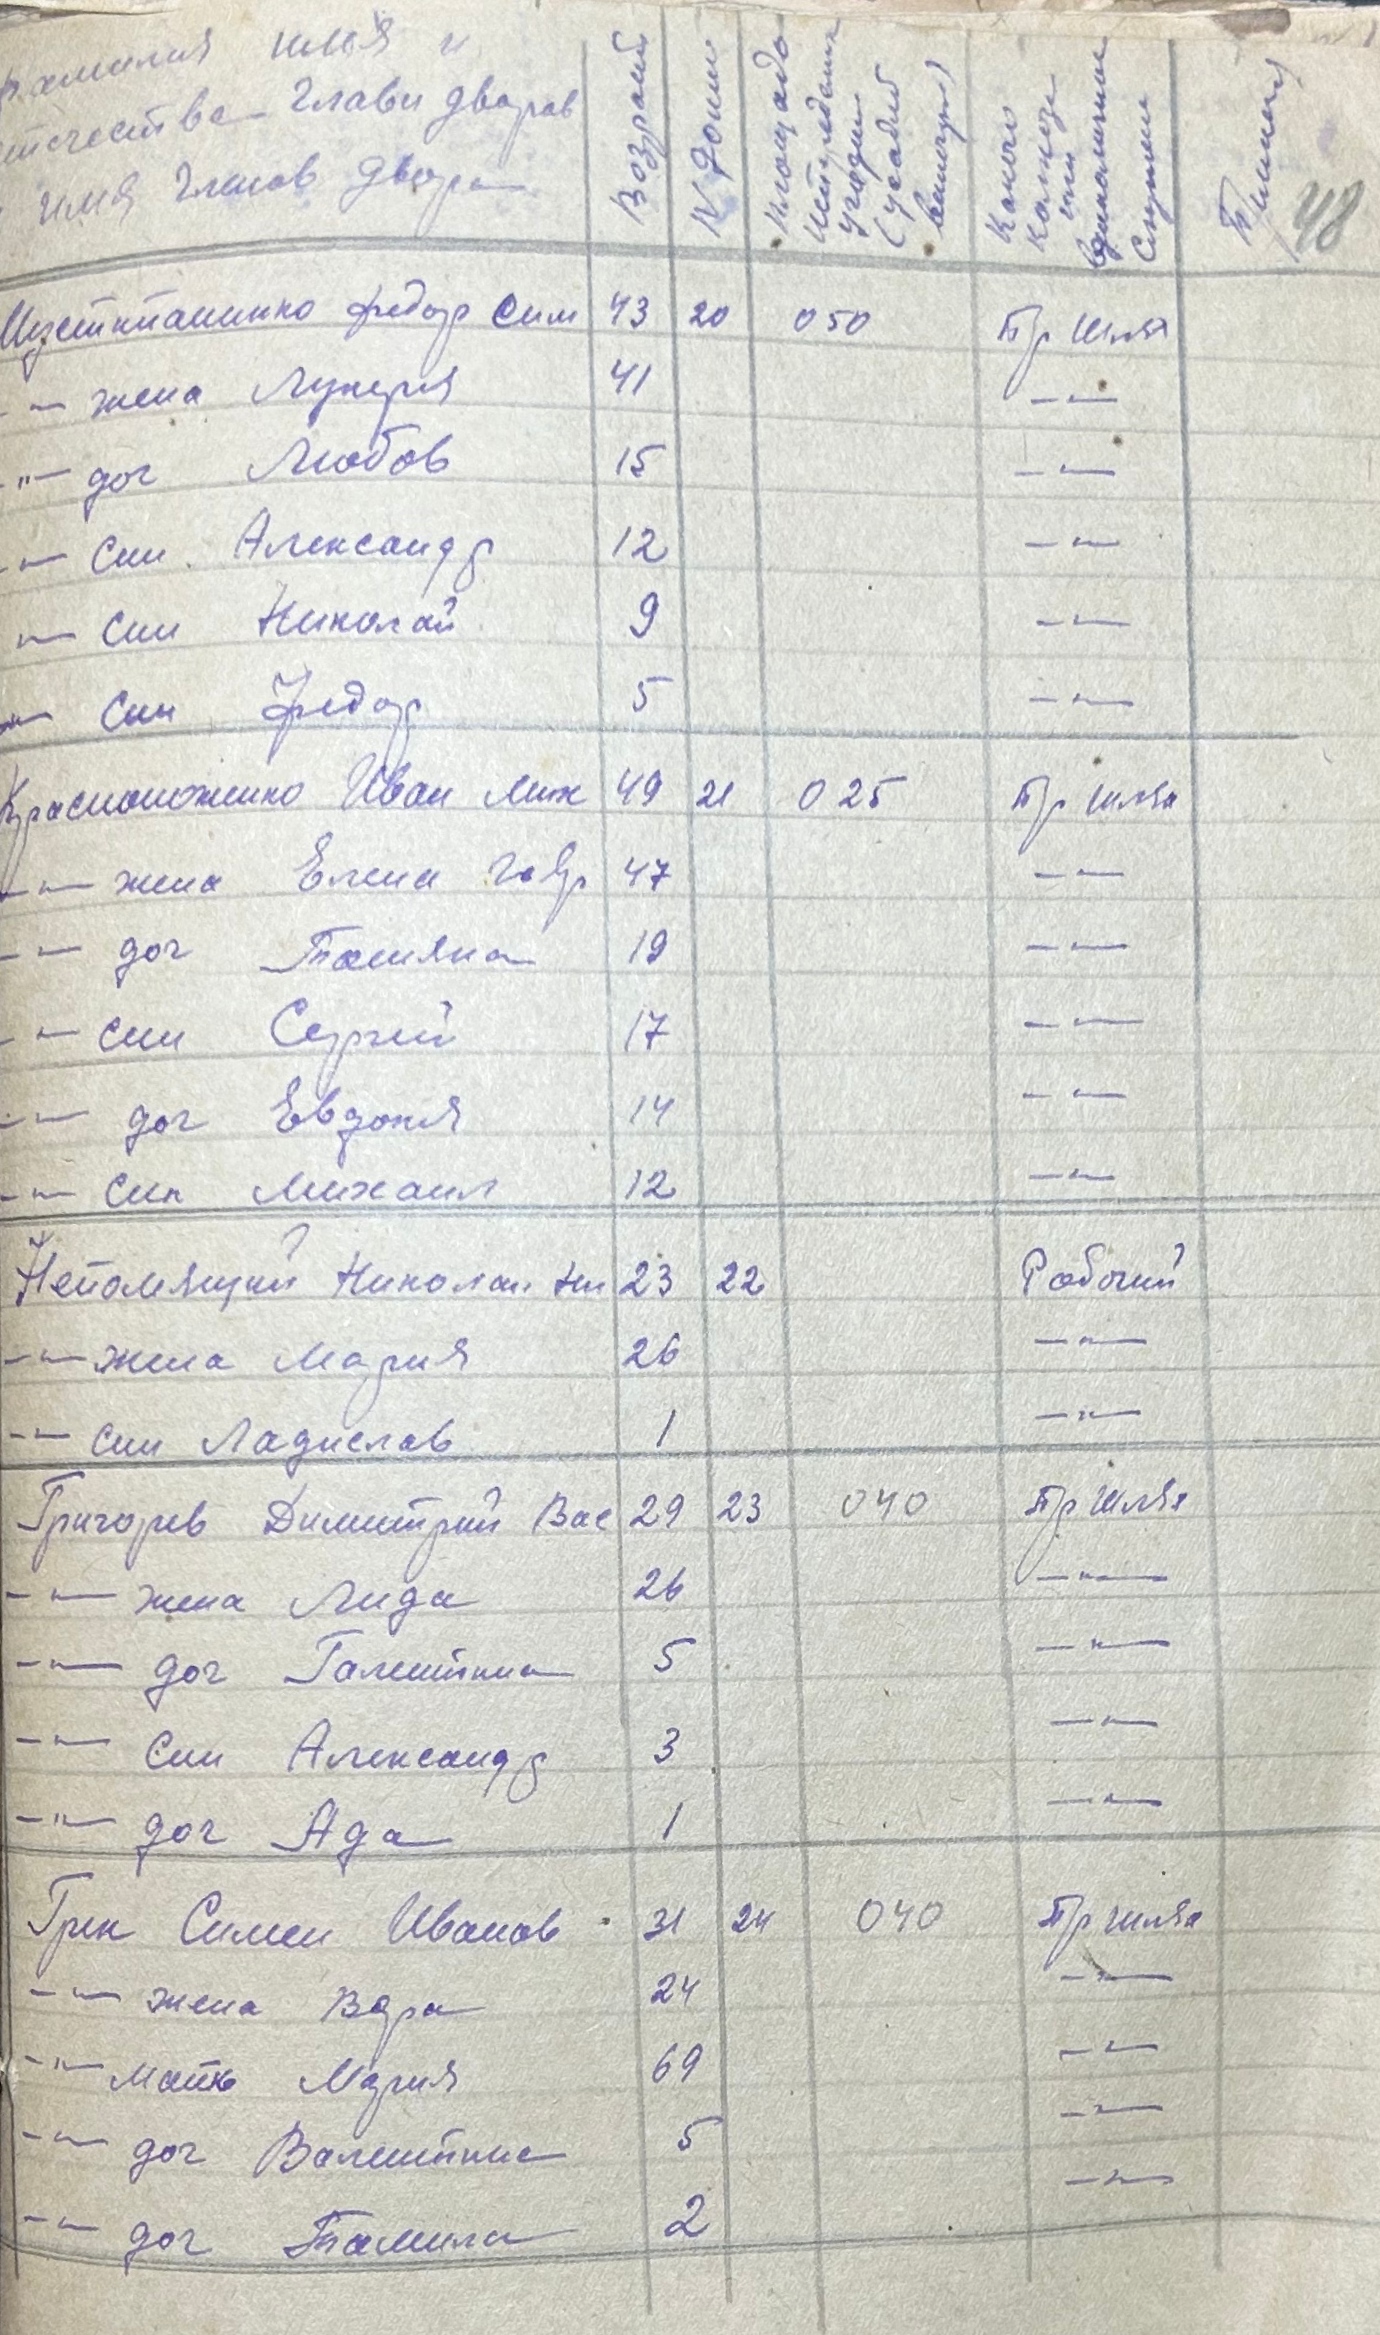 Фамилия имя и
отчество Глави дворов
имя Членов двора
Возраст
N Доми
Площадь
угодии
Какого
колхоза
или
48
Федор Сим 43 20 050 Пр Шлях
-"- жена Лукеря 41 -"-
-"- доч Любов 15 -"-
-"- син Александр 12 -"-
-"- син Николай 9 -"-
-"- син Федор 5 -"-
Красноноженко Иван Мих 49 21 0 25 Пр Шлях
-"- жена Елена Гавр 47 -"-
-"- доч Татяна 19 -"-
-"- син Сергий 17 -"-
-"- доч Евдокия 14 -"-
-"- син Михаил 12 -"-
Непомящий Николай Ник 23 22 Робочий
-"- жена Мария 26 -"-
-"- син Ладислав 1 -"-
Григорев Димитрий Вас 29 23 040 Пр Шлях
-"- жена Лида 26 -"-
-"- доч Галентина 5 -"-
-"- син Александр 3 -"-
-"- доч Ада 1 -"-
Грек Симен Иванов 31 24 040 Пр шлях
-"- жена Вера 24 -"-
-"- мать Мария 69 -"-
-"- доч Валентина 5 -"-
-"- доч Тамила 2 -"-